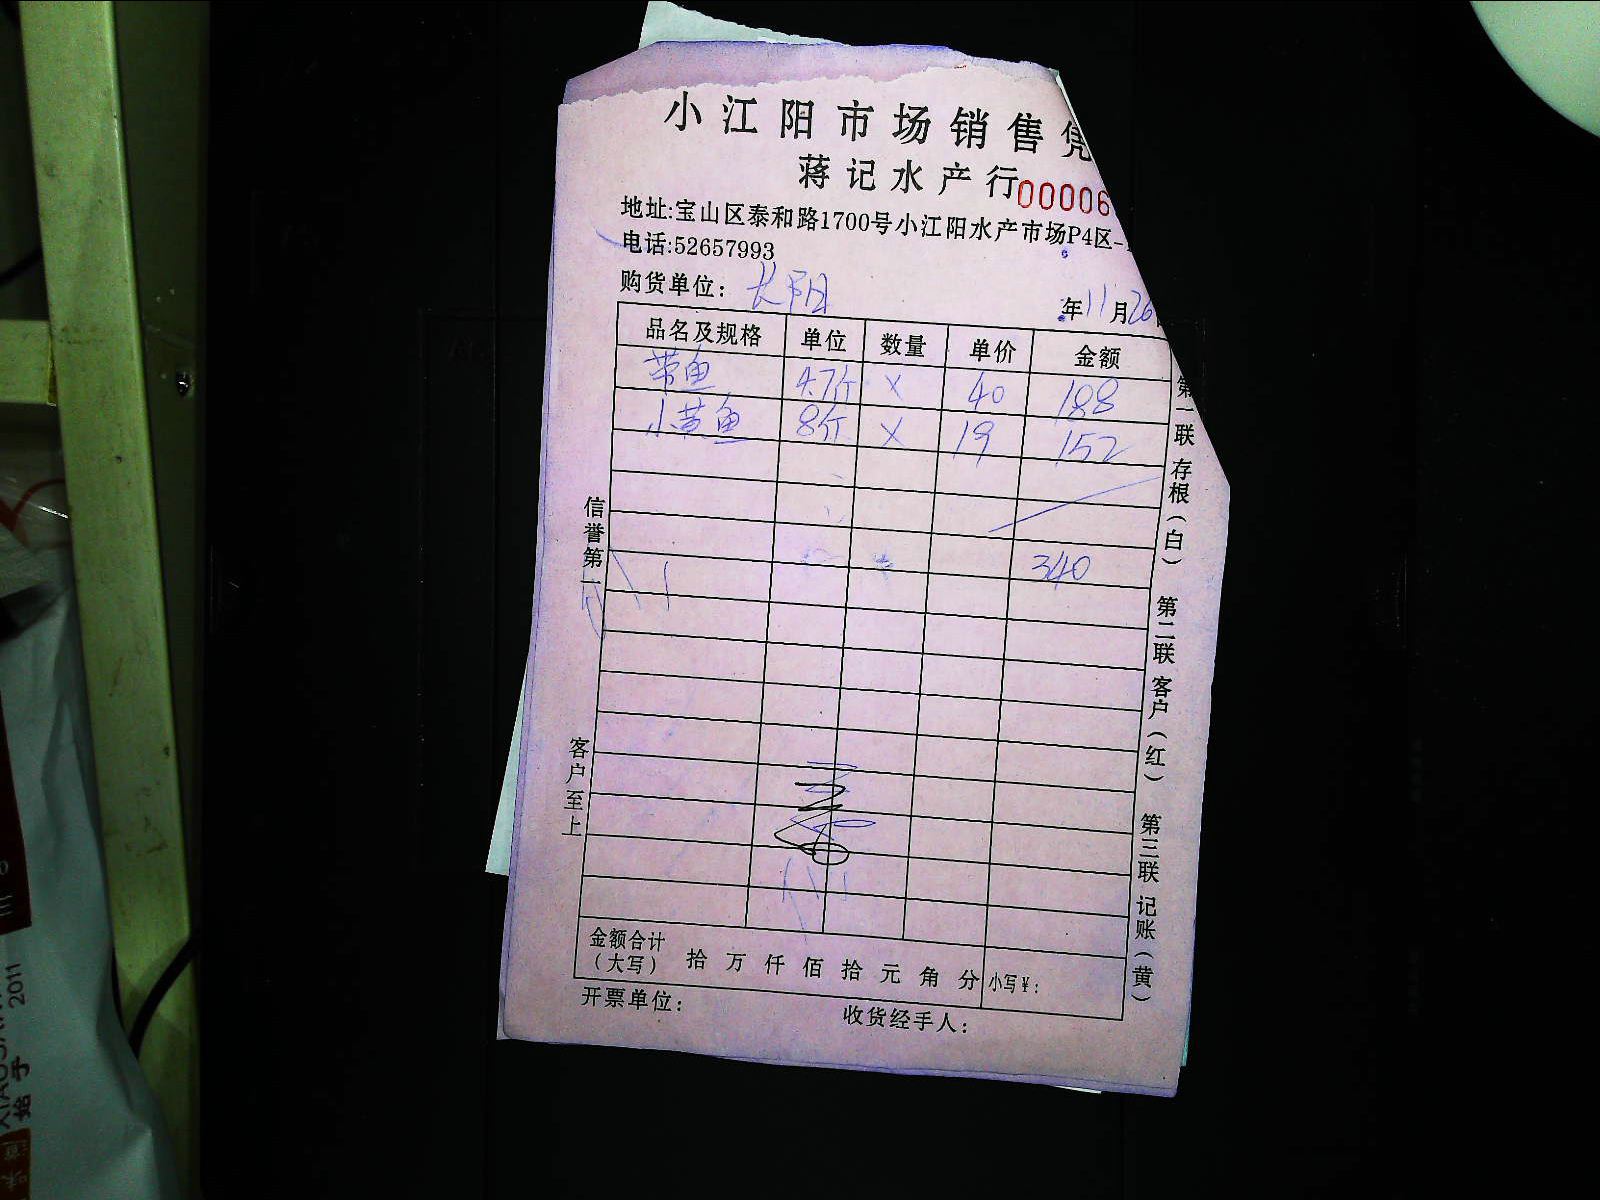 小江阳市场销售凭
蒋记水产行 00006
地址:宝山区泰和路1700号小江阳水产市场P4区-
电话:52657993
购货单位: 长阳
年11月26
品名及规格 单位 数量 单价 金额
带鱼 4.7斤 × 40 188
小黄鱼 8斤 × 19 152
340
金额合计
(大写) 拾 万 仟 佰 拾 元 角 分 小写¥:
开票单位: 收货经手人:
信誉第一
客户至上
第一联 存根(白) 第二联 客户(红) 第三联 记账(黄)
2011